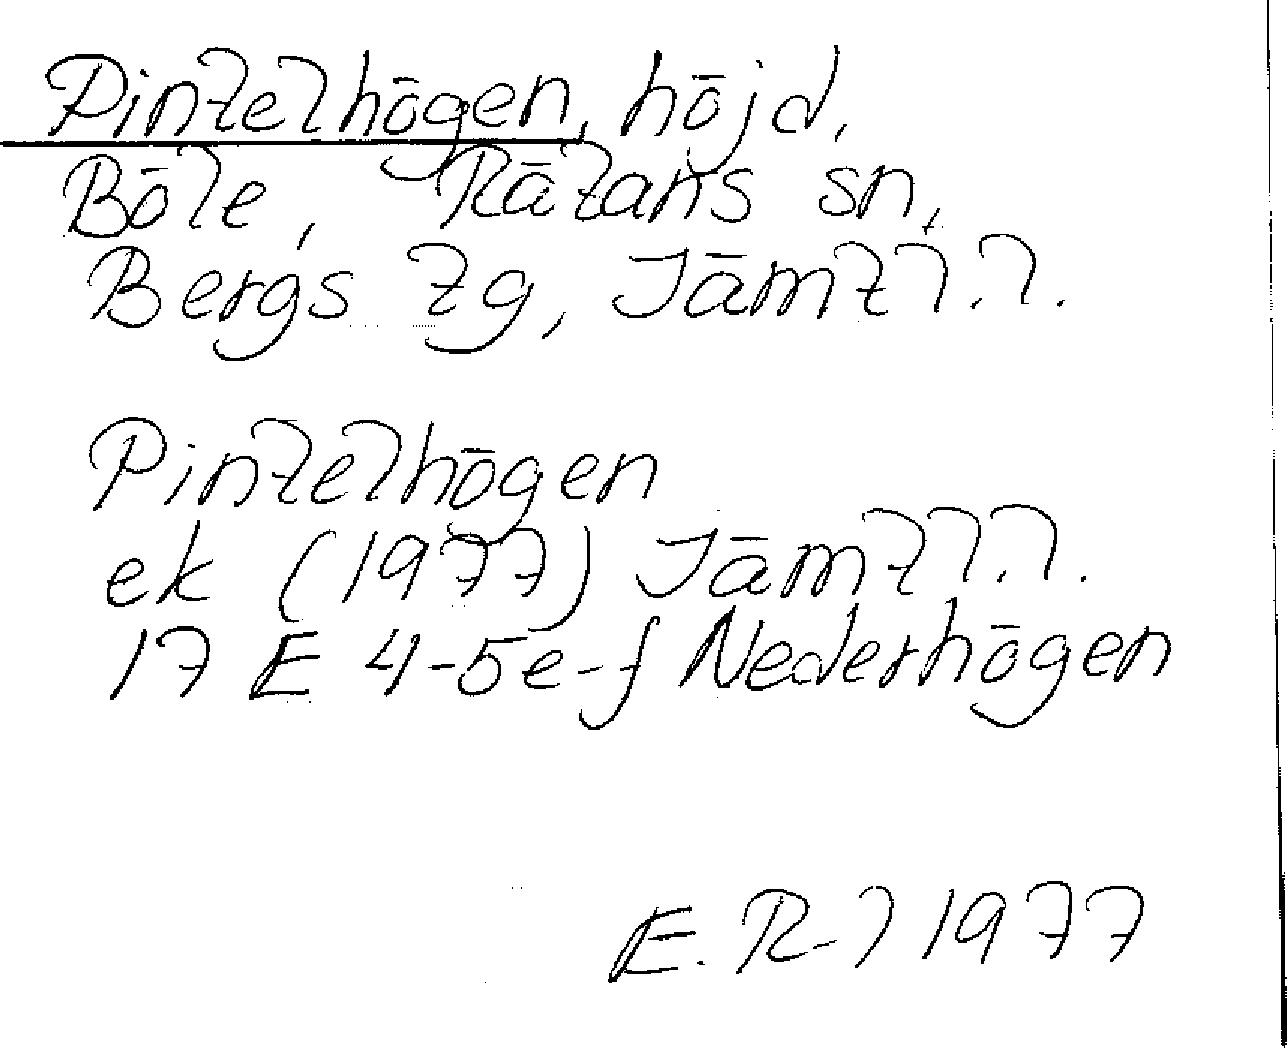 Pintelhögen, höjd,
Böle, Rätans sn,
Bergs tg, Jämtl.l.
Pintelhögen
ek (1977) Jämtl.l.
17 E 4-5e-f Nederhögen
E. R-l 1977